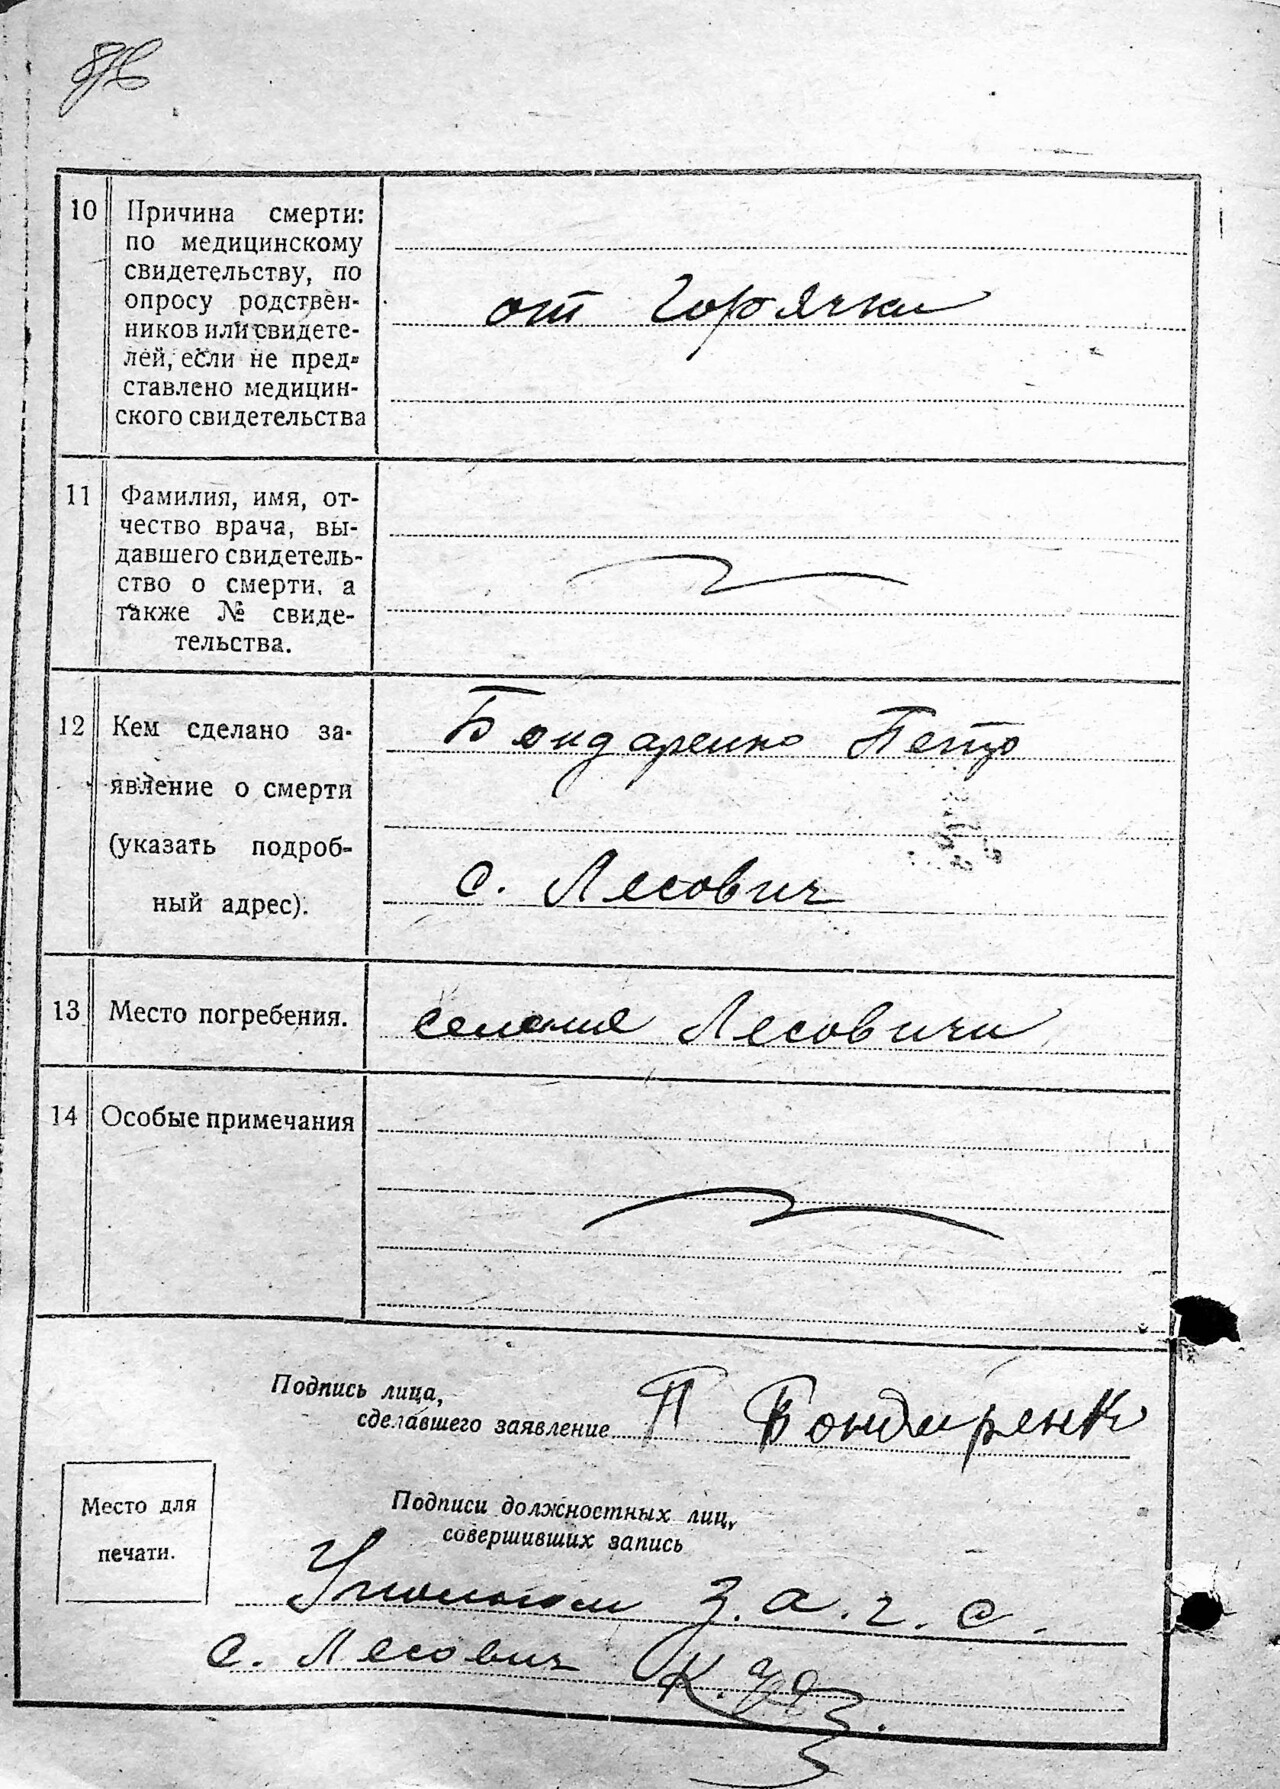 10 Причина смерти:
по медицинскому
свидетельству, по
опросу родствен-
ников или свидете-
лей, если не пред-
ставлено медицин-
ского свидетельства
от Горячки
11 Фамилия, имя, от-
чество врача, вы-
давшего свидетель-
ство о смерти, а
также № свиде-
тельства.
12 Кем сделано за-
явление о смерти
(указать подроб-
ный адрес).
Бондаренко Петр
с. Лесович
13 Место погребения.
селение Лесовичи
14 Особые примечания
Подпись лица,
сделавшего заявление П Бондаренк
Место для
печати.
Подписи должностных лиц,
совершивших запись
З.а.г.с.
с. Лесович К.